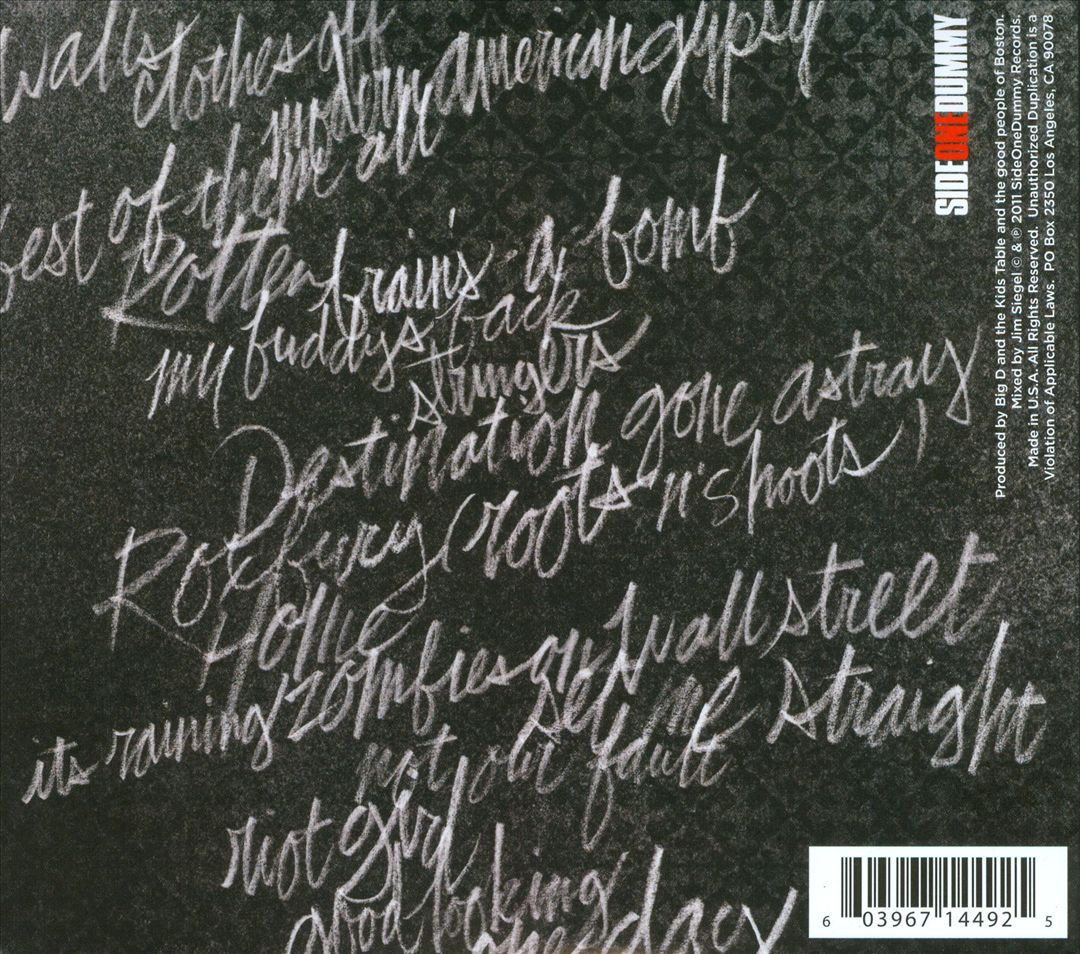 walls
clothes off
modern american gypsy
best of them all
Rotten
brain's a bomb
my buddys back
stringers
Destination gone astray
Roxbury (roots n' shoots)
Home
its raining zombies on wall street
set me straight
not our fault
riot girl
good looking
one day
SIDEONEDUMMY
Produced by Big D and the Kids Table and the good people of Boston.
Mixed by Jim Siegel © & ℗ 2011 SideOneDummy Records.
Made in U.S.A. All Rights Reserved. Unauthorized Duplication is a
Violation of Applicable Laws. PO Box 2350 Los Angeles, CA 90078
6 03967 14492 5